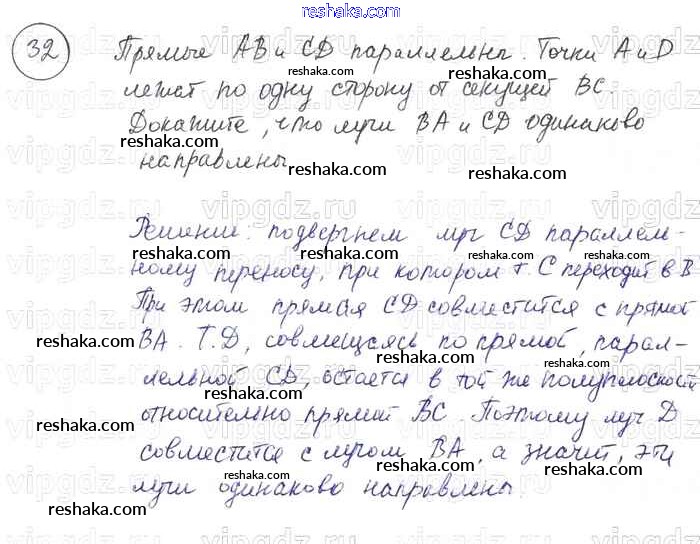 reshaka.com
32 Прямые АВ и СD параллельны. Точки А и D
лежат по одну сторону от секущей ВС.
Докажите, что лучи ВА и СD одинаково
направлены
Решение: подвергнем луч СD параллель-
ному переносу, при котором т. С переходит в В
При этом прямая СD совместится с прямой
ВА. Т. D, совмещаясь по прямой, парал-
лельной СD, остается в той же полуплоскости
относительно прямой ВС. Поэтому луч D
совместится с лучом ВА, а значит, эти
лучи одинаково направлены.